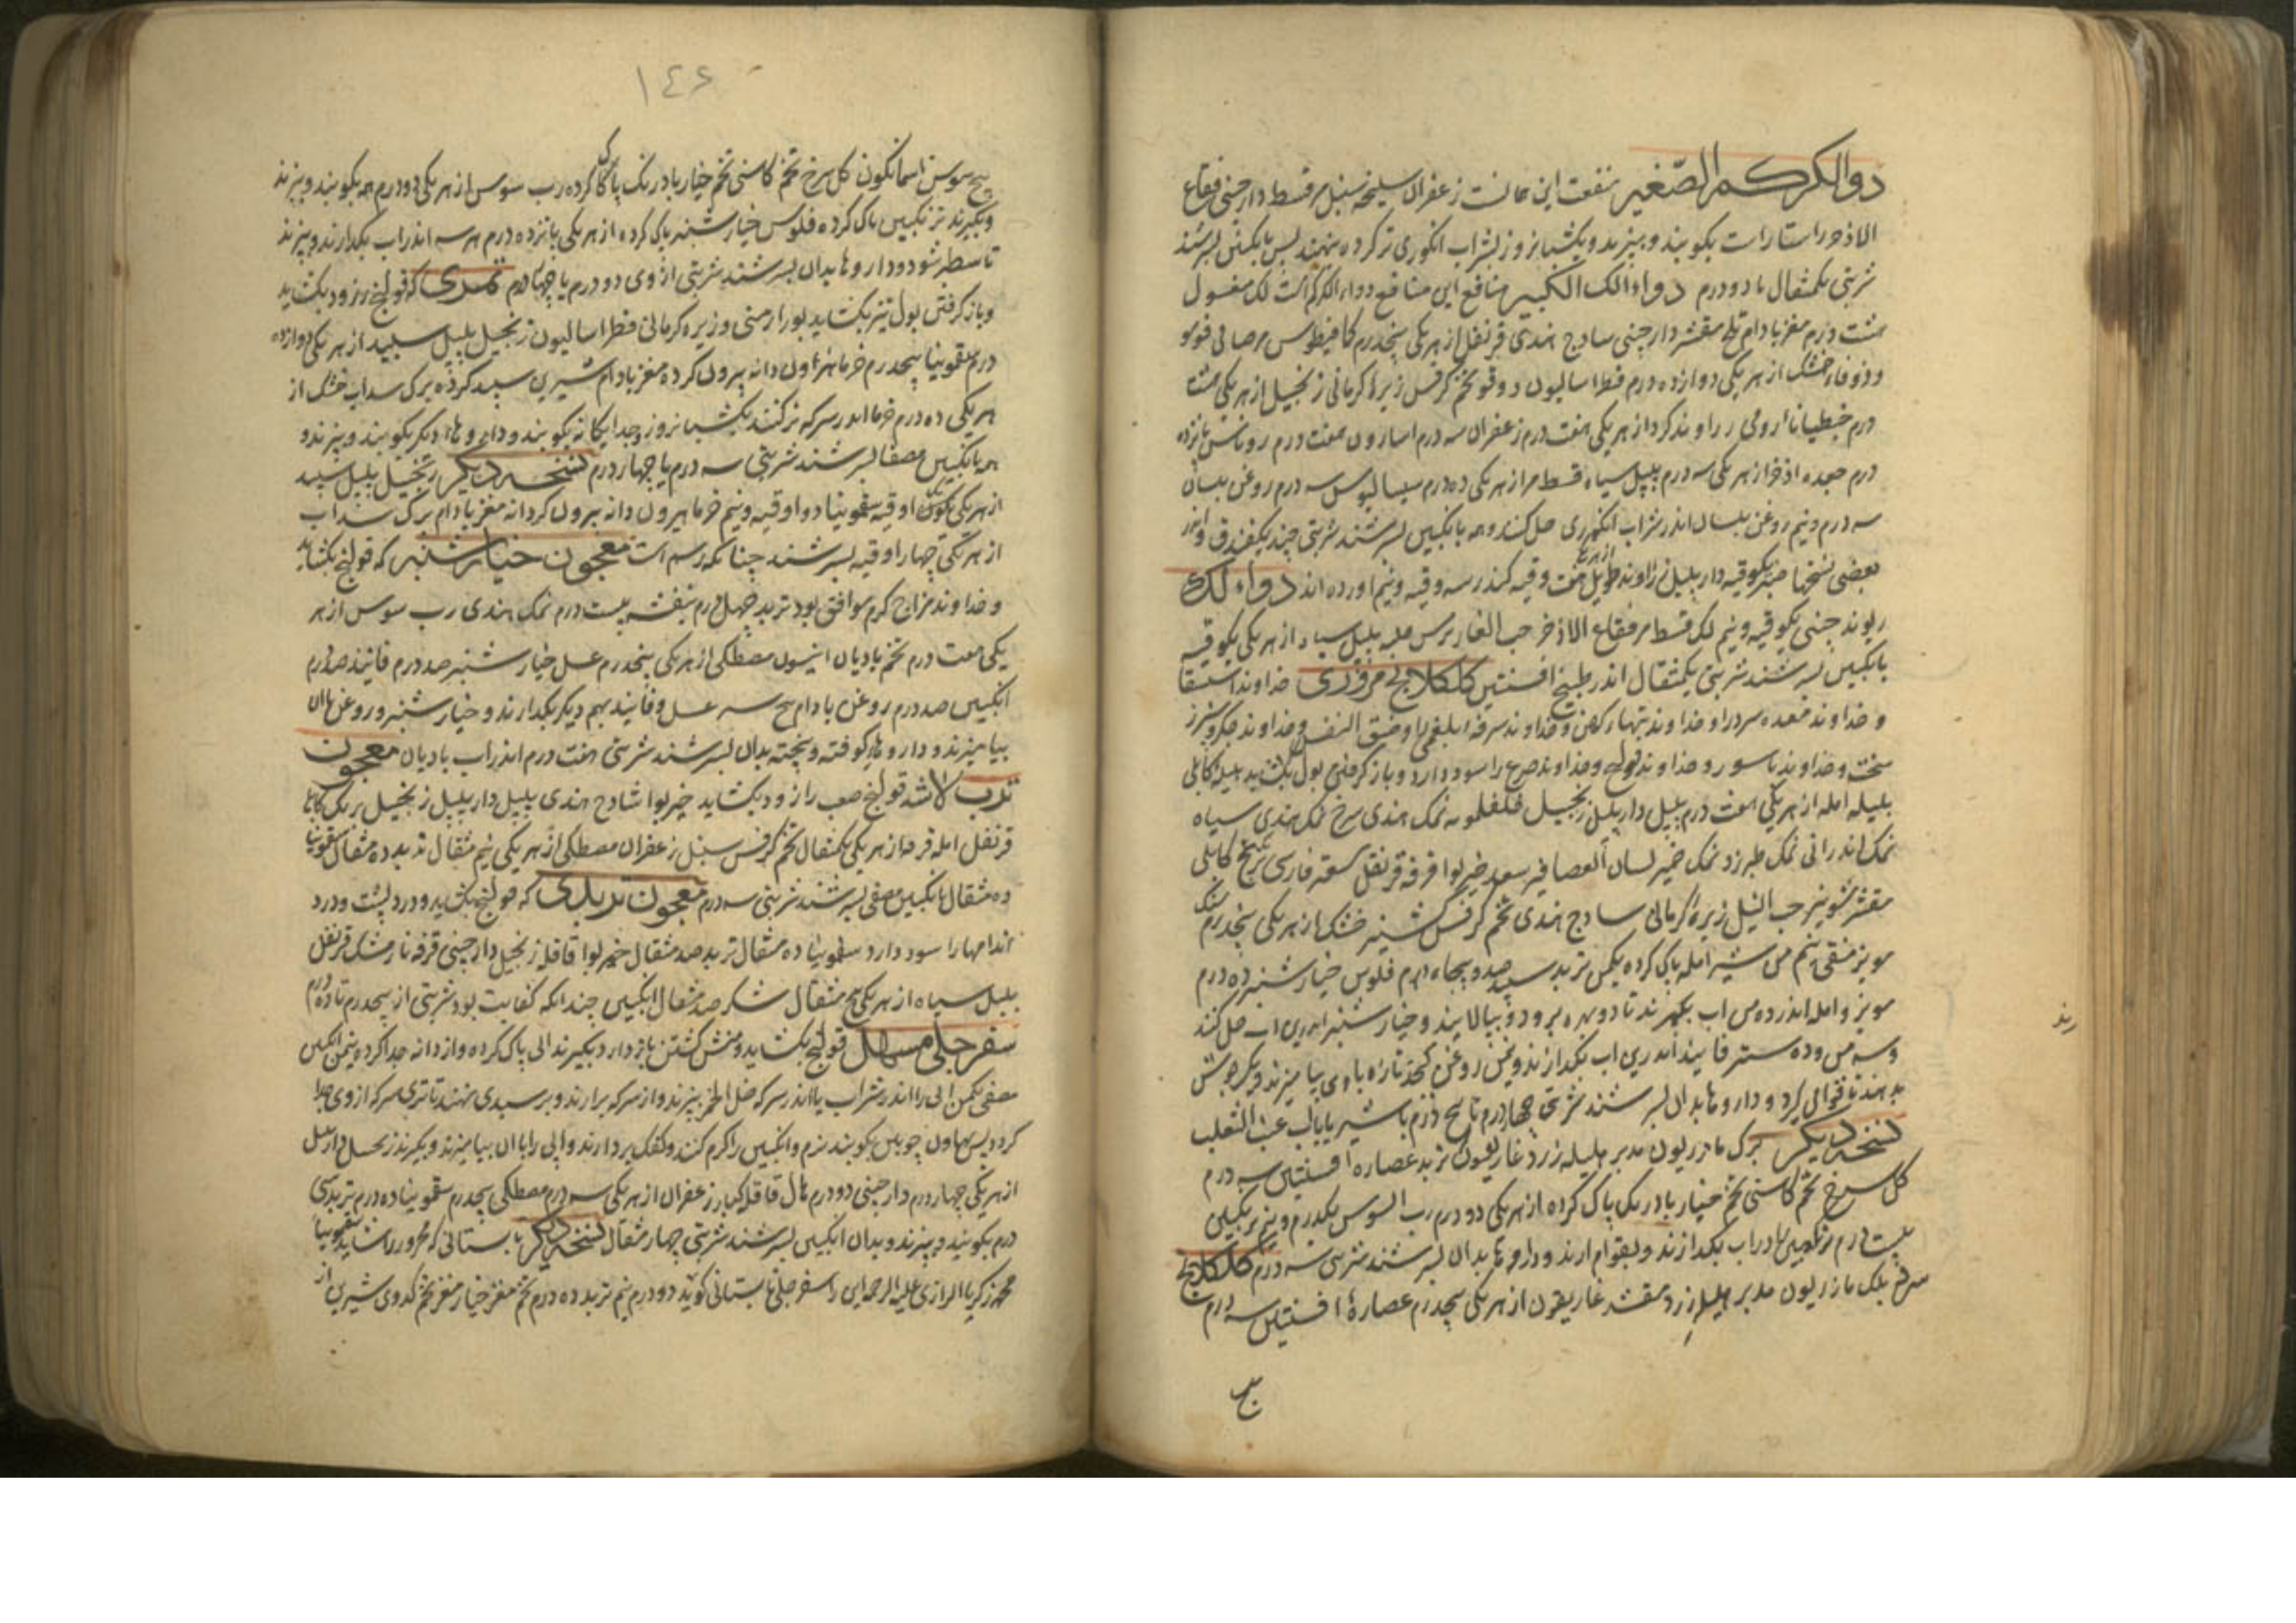 دوا الکرکم الصغیر منفعت این همانست زعفران سلیخه سنبل مر قسط دارچینی فقاع
الاذخر راستا راست بکوبند و ببیزند و یکشبانروز بشراب انکوری تر کرده بنهند پس بانکبین بسرشند
شربتی یکمثقال تا دو درم دواء اللک الکبیر منافع این منافع دواء الکرکم است لک مغسول
هشت درم مغز بادام تلخ مقشر دارچینی سادج هندی قرنفل از هر یکی پنجدرم کمافیطوس مر صافی فوه
و زوفاء خشک از هر یکی دوازده درم فطراسالیون دوقو تخم کرفس زیره کرمانی زنجبیل از هر یکی هشت
درم جنطیانا رومی راوند کرد از هر یکی هفت درم زعفران سه درم اسارون هفت درم روناس پانزده
درم جعده اذخر از هر یکی سه درم پلپل سیاه قسط مر از هر یکی ده درم سیسالیوس سه درم روغن بلسان
سه درم و نیم روغن بلسان اندر شراب انکوری حل کنند و همه بانکبین بسرشند شربتی چند یکفندق و اندر
بعضی نسختها صبر یکوقیه دارپلپل زراوند طویل از هر یکی هفت وقیه کندر سه وقیه و نیم اورده اند دواء لک
ریوند چینی یکوقیه و نیم لک قسط مر فقاع الاذخر حب الغار ترمس حلبه پلپل سیاه از هر یکی یکوقیه
بانکبین بسرشند شربتی یکمثقال اندر طبیخ افسنتین کلکلانج مروزی خداوند استسقا
و خداوند معده سرد را و خداوند تبهاء کهن و خداوند سرفه بلغمی را و ضیق النفس و خداوند جکر و سپرز
سخت و خداوند ناسور و خداوند قولنج و خداوند صرع را سود دارد و باز کرفتن بول بکشاید هلیله کابلی
بلیله امله از هر یکی هفت درم پلپل دارپلپل زنجبیل فلفلمویه نمک هندی سرخ نمک هندی سیاه
نمک اندرانی نمک طبرزد نمک خمیر لسان العصافیر سعد خیربوا قرفه قرنفل سعتر فارسی برنج کابلی
مقشر شونیز حب النیل زیره کرمانی سادج هندی تخم کرفس کشنیز خشک از هر یکی پنجدرم سنک
مویز منقی نیم من شیر امله پاک کرده یکمن تربد سپید صد و پنجاه درم فلوس خیارشنبر ده درم
مویز و امله اندر ده من اب بپزند تا دو بهره برود و بپالایند و خیارشنبر اندرین اب حل کنند
و سه من و ده ستر فانید اندرین اب بکدازند و نیمن روغن کنجد تازه باوی بیامیزند و یکجوش
بدهند تا قوام کیرد و داروها بدان بسرشند شربتی چهار درم تا پنج درم با شیر یا باب عنب الثعلب
نسخه دیکر برک مازریون مدبر هلیله زرد غاریقون تربد عصاره افسنتین سه درم
کل سرخ تخم کاسنی تخم خیار بادرنک پاک کرده از هر یکی دو درم رب السوس یکدرم و نیم ترنکبین
بیست درم ترنکبین را در اب بکدازند و بقوام ارند و داروها بدان بسرشند شربتی سه درم کلکلانج
سرخ بلک مازریون مدبر هلیله زرد مقشر غاریقون از هر یکی پنجدرم عصارۀ افسنتین سه درم
بیخ
۱۴۶
بیخ سوسن اسمانکون کل سرخ تخم کاسنی تخم خیار بادرنک پاک کرده رب سوس از هر یکی دو درم همه بکوبند و ببیزند
و بکیرند ترنکبین پاک کرده فلوس خیارشنبر پاک کرده از هر یکی پانزده درم هر سه اندر اب بکدازند و بپزند
تا سطبر شود و داروها بدان بسرشند شربتی از وی دو درم یا چهار درم تمری که قولنج زود بکشاید
و باز کرفتن بول نیز بکشاید بوره ارمنی و زیره کرمانی فطراسالیون زنجبیل پلپل سپید از هر یکی دوازده
درم سقمونیا پنجدرم خرماء هیرون دانه بیرون کرده مغز بادام شیرین سپید کرده برک سداب خشک از
هر یکی ده درم خرما اندر سرکه تر کنند یکشبانروز و جداکانه بکوبند و داروهاء دیکر بکوبند و ببیزند و
همه بانکبین مصفا بسرشند شربتی سه درم یا چهار درم نسخه دیکر زنجبیل پلپل سپید
از هر یکی یکوقیه سقمونیا دو اوقیه و نیم خرما هیرون دانه بیرون کرده مغز بادام برک سداب
از هر یکی چهار اوقیه بسرشند چنانکه رسم است معجون خیارشنبر که قولنج بکشاید
و خداوند مزاج کرم موافق بود تربد چهل درم بنفشه بیست درم نمک هندی رب سوس از هر
یکی هفت درم تخم بادیان انیسون مصطکی از هر یکی پنجدرم عسل خیارشنبر صد درم فانید صد درم
انکبین صد درم روغن بادام پنج ستر عسل و فانید بهم دیکر بکدازند و خیارشنبر و روغن با ان
بیامیزند و داروها کوفته و بیخته بدان بسرشند شربتی هفت درم اندر اب بادیان معجون
قولنج صعب را زود بکشاید خیربوا سادج هندی پلپل دارپلپل زنجبیل برنک کابلی
قرنفل امله قرفه از هر یکی یکمثقال تخم کرفس سنبل زعفران مصطکی از هر یکی نیم مثقال تربد ده مثقال سقمونیا
ده مثقال بانکبین مصفی بسرشند شربتی سه درم معجون تربدی که قولنج بکشاید و درد پشت و درد
اندامها را سود دارد سقمونیا ده مثقال تربد صد مثقال خیربوا قاقله زنجبیل دارچینی قرفه نارمشک قرنفل
پلپل سیاه از هر یکی پنج مثقال شکر صد مثقال انکبین چندانکه کفایت بود شربتی از پنجدرم تا ده درم
سفرجلی مسهل قولنج بکشاید و منش کشتن باز دارد بکیرند ابی پاک کرده و از دانه جدا کرده نیمن انکبین
مصفی یکمن ابی را اندر شراب یا اندر سرکه خل الخمر بپزند و از سرکه برارند و بر سبدی نهند تا تری سرکه از وی جدا
کردد پس بهاون چوبین بکوبند نرم و انکبین را کرم کنند و کفک بردارند و ابی را با ان بیامیزند و بکیرند زنجبیل دارپلپل
از هر یکی چهار درم دارچینی دو درم هال قاقله کبار زعفران از هر یکی سه درم مصطکی پنجدرم سقمونیا ده درم تربد سی
درم بکوبند و ببیزند و بدان انکبین بسرشند شربتی چهار مثقال نسخه دیکر تابستانی که محرور را شاید سقمونیا
محمد زکریا الرازی علیه الرحمه این را سفرجلی تابستانی کوید دو درم نیم تربد ده درم تخم مغز خیار مغز تخم کدوی شیرین از